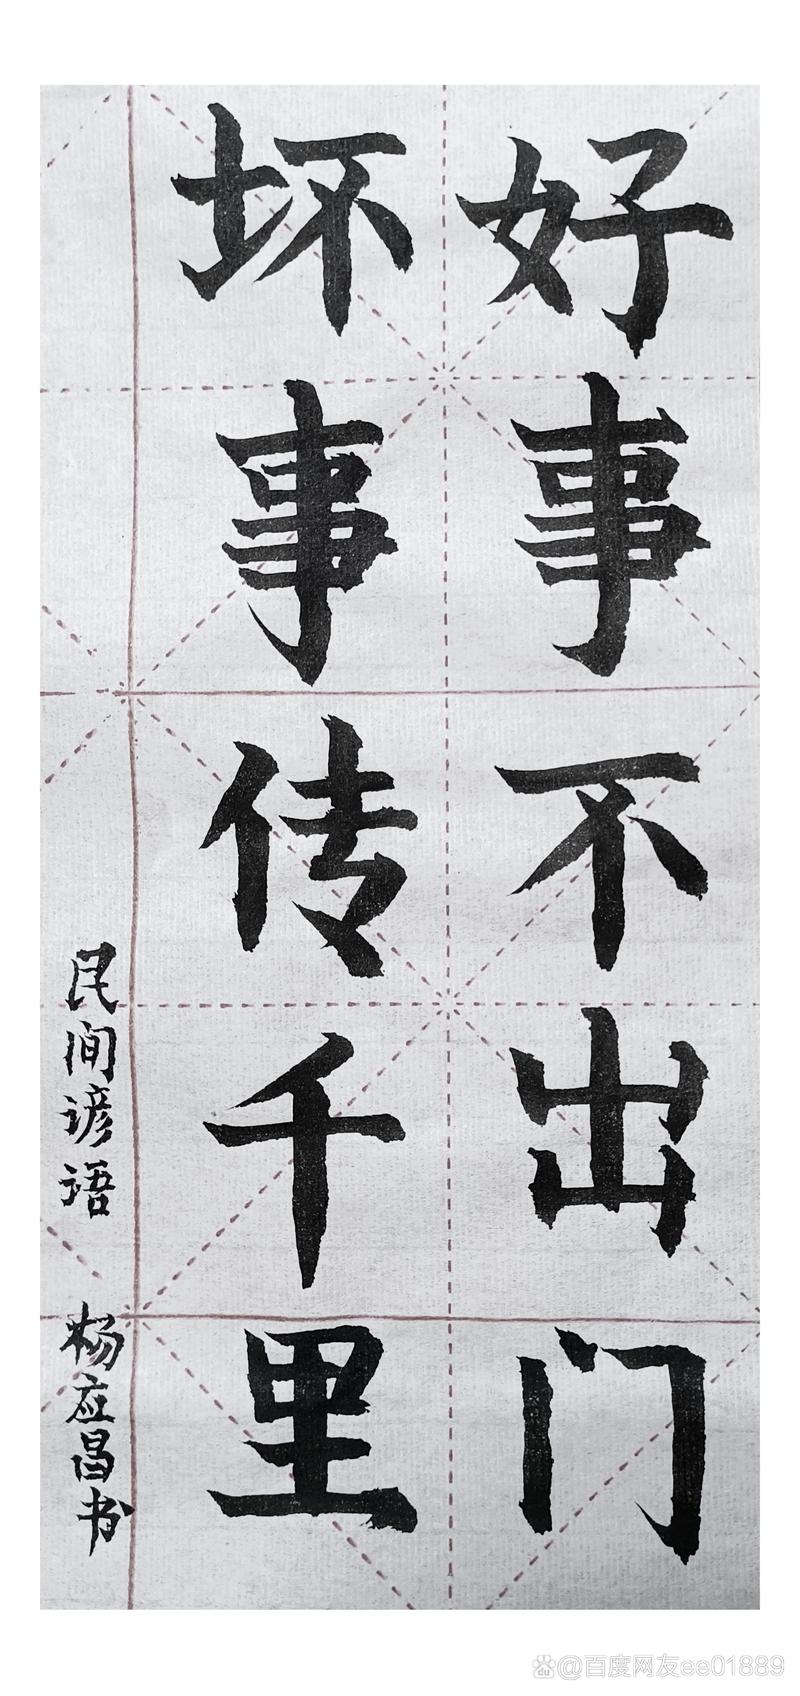 好事不出门
坏事传千里
民间谚语 杨应昌书
@百度网友ee01889